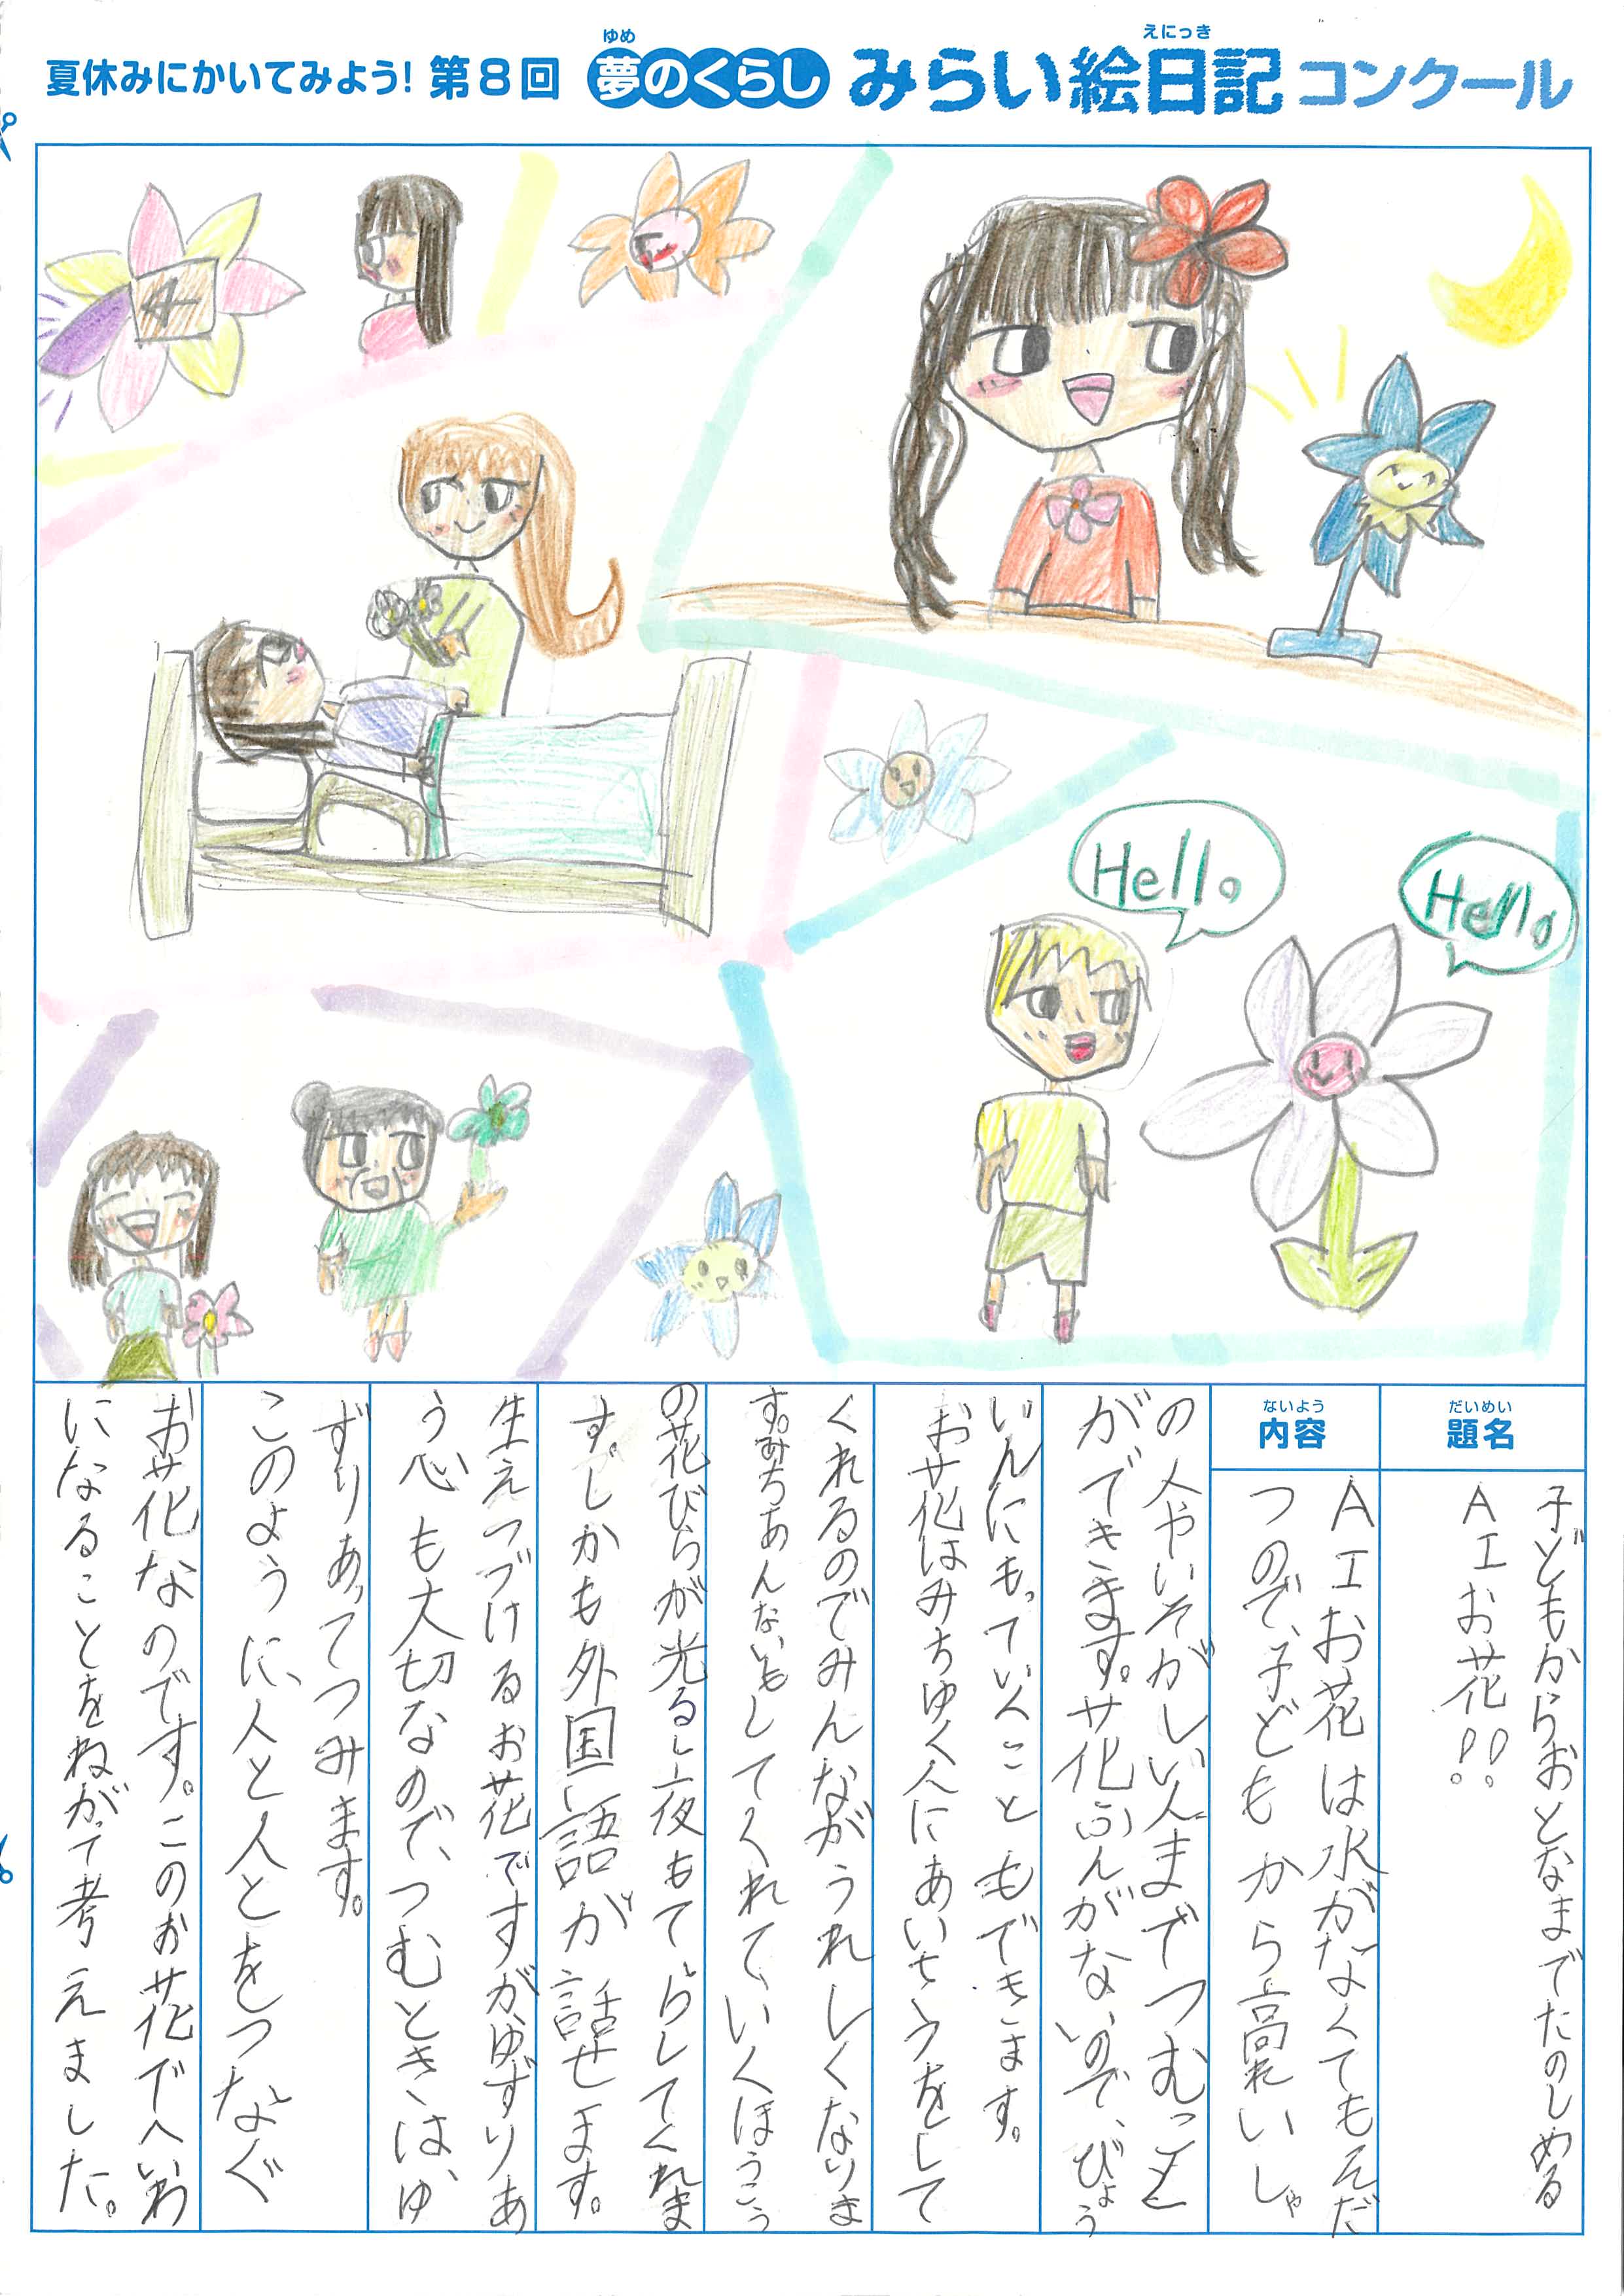 夏休みにかいてみよう! 第8回 夢のくらし みらい絵日記 コンクール
ゆめ
えにっき
Hello
Hello
だいめい
題名
子どもからおとなまでたのしめる
AIお花!!
ないよう
内容
AIお花は水がなくてもそだ
つので、子どもから高れいしゃ
の人やいそがしい人までつむこと
ができます。花ふんがないので、びょう
いんにもっていくこともできます。
お花はみちゆく人にあいさつをして
くれるのでみんながうれしくなりま
す。みちあんないもしてくれて、いくほうこう
の花びらが光るし夜もてらしてくれま
す。しかも外国語が話せます。
生えつづけるお花ですが、ゆずりあ
う心も大切なので、つむときは、ゆ
ずりあってつみます。
このように、人と人とをつなぐ
お花なのです。このお花でへいわ
になることをねがって考えました。